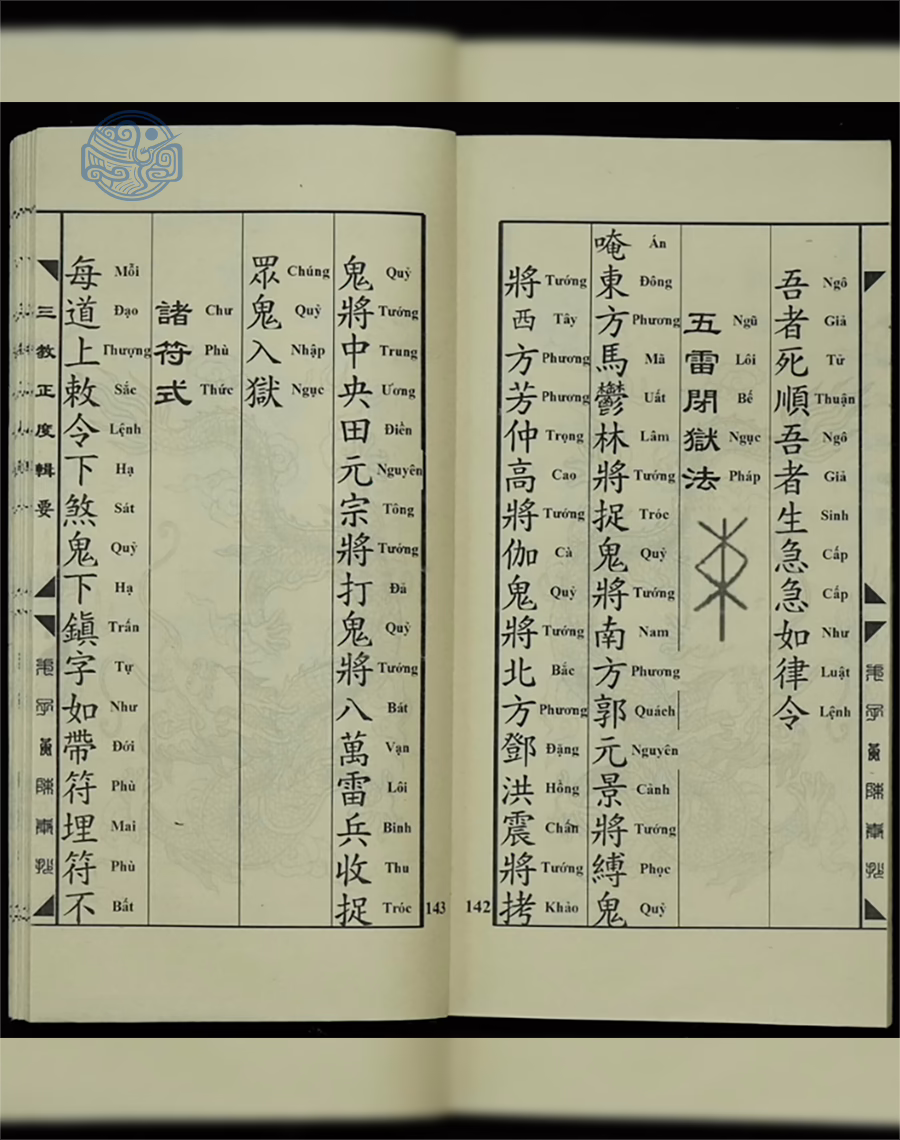 吾者死順吾者生急急如律令
Ngô Giả Tử Thuận Ngô Giả Sinh Cấp Cấp Như Luật Lệnh
五雷閉獄法
Ngũ Lôi Bế Ngục Pháp
唵東方馬鬱林將捉鬼將南方郭元景將縛鬼
Án Đông Phương Mã Uất Lâm Tướng Tróc Quỷ Tướng Nam Phương Quách Nguyên Cảnh Tướng Phọc Quỷ
將西方芳仲高將伽鬼將北方鄧洪震將拷
Tướng Tây Phương Phương Trọng Cao Tướng Cà Quỷ Tướng Bắc Phương Đặng Hồng Chấn Tướng Khảo
142
鬼將中央田元宗將打鬼將八萬雷兵收捉
Quỷ Tướng Trung Ương Điền Nguyên Tông Tướng Đả Quỷ Tướng Bát Vạn Lôi Binh Thu Tróc
眾鬼入獄
Chúng Quỷ Nhập Ngục
諸符式
Chư Phù Thức
每道上敕令下煞鬼下鎮字如帶符埋符不
Mỗi Đạo Thượng Sắc Lệnh Hạ Sát Quỷ Hạ Trấn Tự Như Đới Phù Mai Phù Bất
三教正度輯要
143